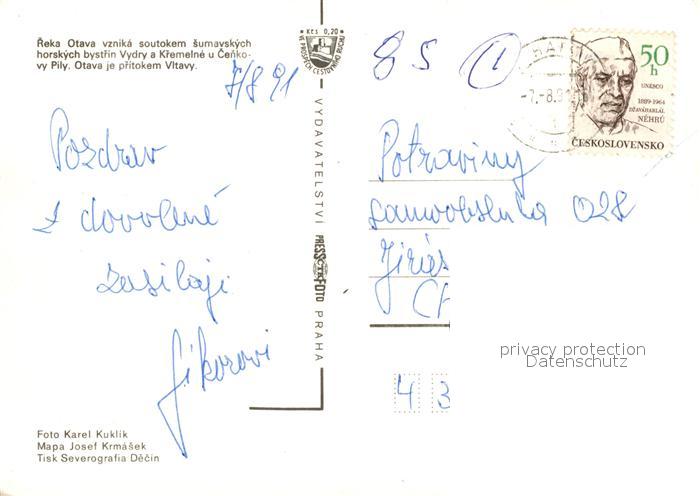 Řeka Otava vzniká soutokem šumavských
horských bystřin Vydry a Křemelné u Čeňko-
vy Pily. Otava je přítokem Vltavy.
7/8 91
Pozdrav
z dovolené
zasílají
Jíkorovi
Foto Karel Kuklík
Mapa Josef Krmášek
Tisk Severografia Děčín
Kčs 0,20
VE PROSPĚCH CESTOVNÍHO RUCHU
VYDAVATELSTVÍ PRESSFOTO PRAHA
ČTK
85 1
-7.-8.91
50
h
UNESCO
1889-1964
DŽAVÁHARLÁL
NÉHRÚ
ČESKOSLOVENSKO
Potraviny
samoobsluha 028
Jirás
Ch
privacy protection
Datenschutz
4 3